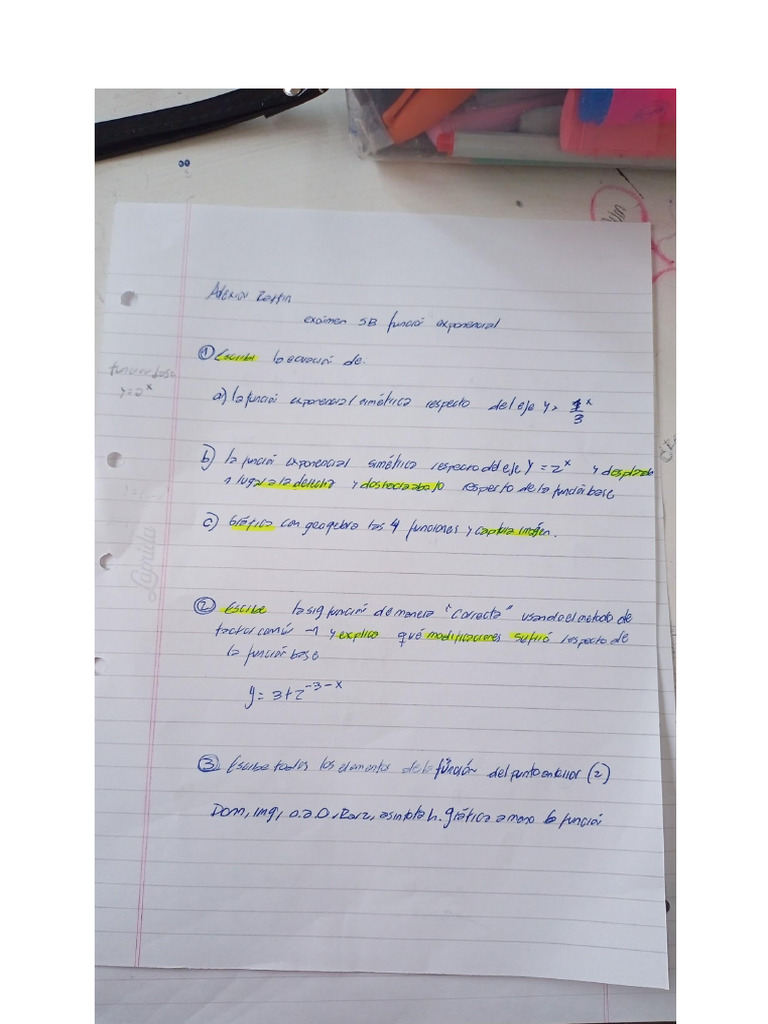 examen 5B función exponencial
① Escribe la ecuación de:
función base
y=2^x
a) la función exponencial simétrica respecto del eje y = 1^x/3
b) la función exponencial simétrica respecto del eje y = 2^x y desplazada
1 lugar a la derecha y dos hacia abajo respecto de la función base
c) Gráfica con geogebra las 4 funciones y captura imagen.
Lamilla
② Escribe la sig función de manera "correcta" usando el metodo de
factor común -1 y explica qué modificaciones sufrió respecto de
la función base
y = 3+2^-3-x
③ Escribe todos los elementos de la función del punto anterior (2)
Dom, img, o.a.O, Raiz, asintota h. gráfica a mano la función